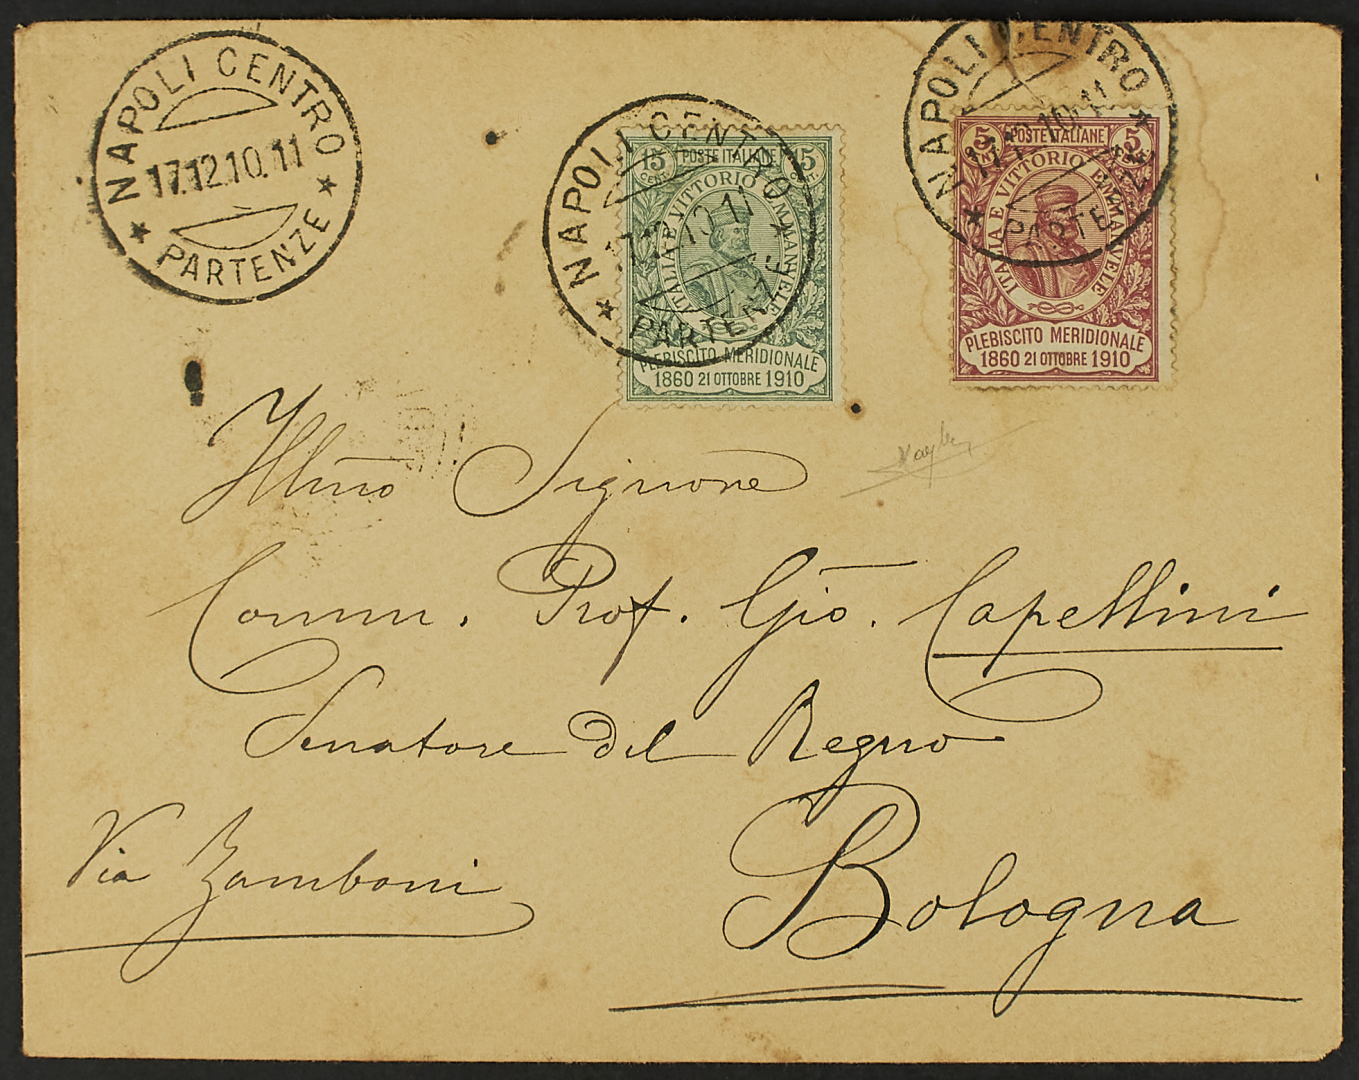 NAPOLI CENTRO
17.12.10.11
★ PARTENZE ★
NAPOLI CENTRO
17.12.10.11
★ PARTENZE ★
15 POSTE ITALIANE 15
CENT. CENT.
ITALIA E VITTORIO EMANVELE
PLEBISCITO MERIDIONALE
1860 21 OTTOBRE 1910
NAPOLI CENTRO
17.12.10.11
★ PARTENZE ★
5 POSTE ITALIANE 5
CENT. CENT.
ITALIA E VITTORIO EMANVELE
PLEBISCITO MERIDIONALE
1860 21 OTTOBRE 1910
Illmo Signore
Comm. Prof. Gio. Capellini
Senatore del Regno
Via Zamboni
Bologna